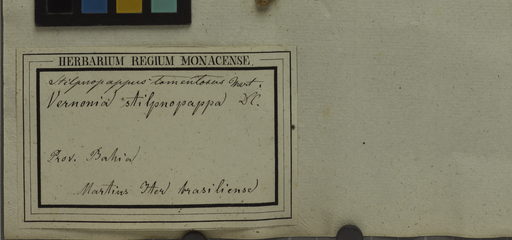 HERBARIUM REGIUM MONACENSE.
Stilpnopappus tomentosus Mart.
Vernonia stilpnopappa DC.
Prov. Bahia
Martius Iter brasiliense